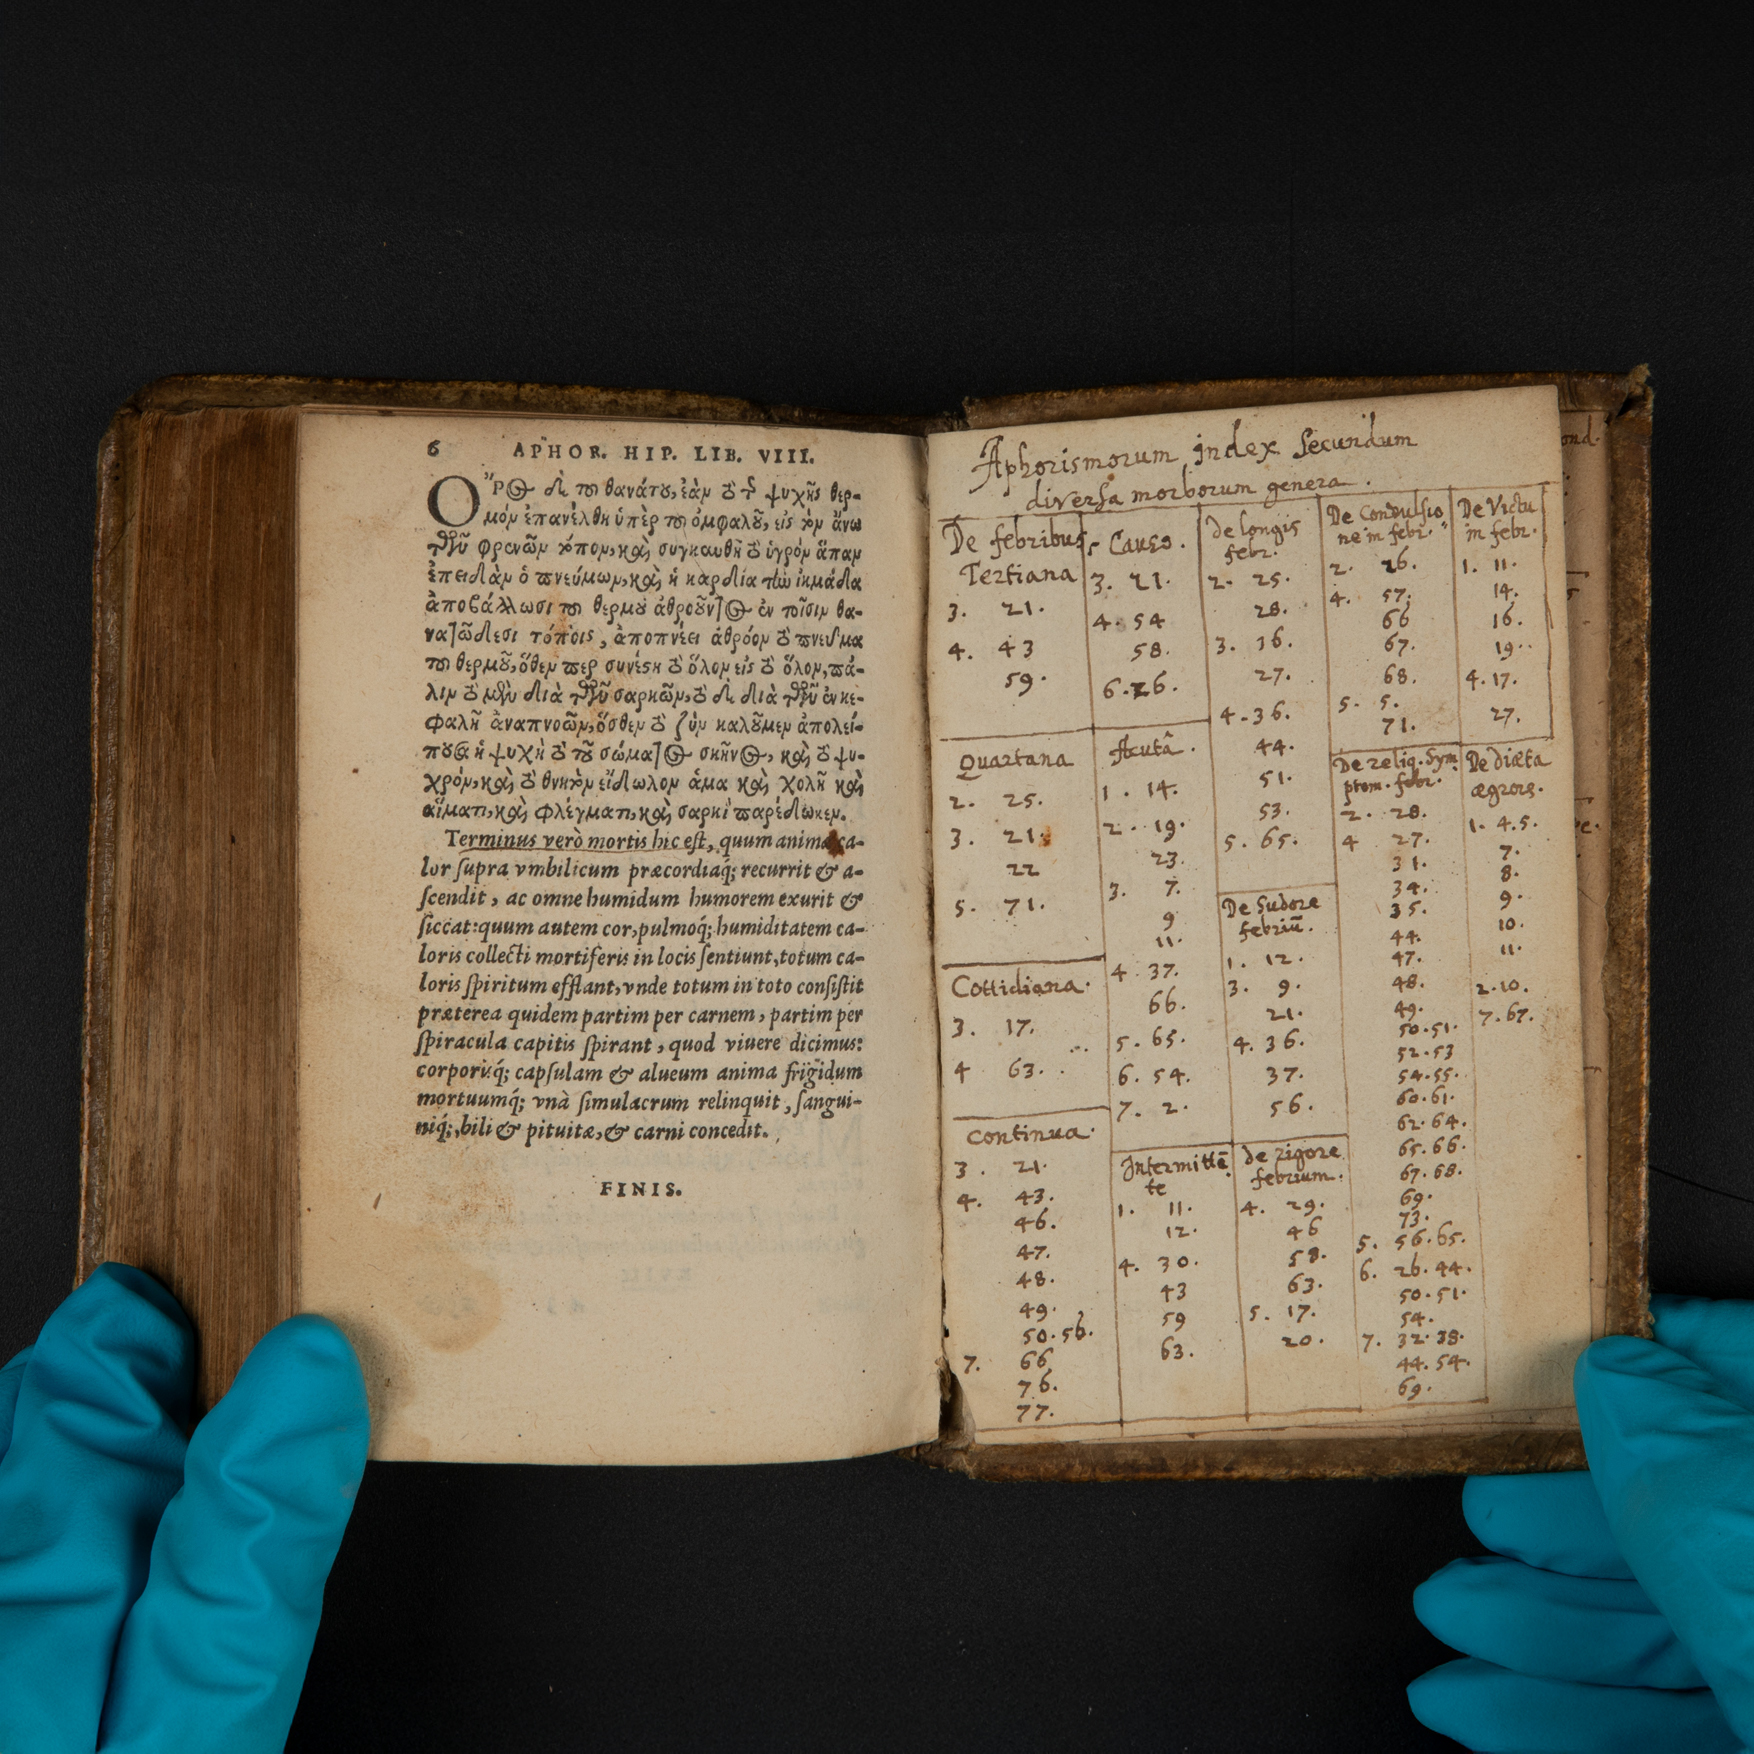 6 APHOR. HIP. LIB. VIII.
Ὅρος δὲ τοῦ θανάτου, ἐὰν τὸ τῆς ψυχῆς θερ-
μὸν ἐπανέλθῃ ὑπὲρ τοῦ ὀμφαλοῦ, εἰς τὸν ἄνω
τῶν φρενῶν τόπον, καὶ συγκαυθῇ τὸ ὑγρὸν ἅπαν
ἐπειδὰν ὁ πνεύμων, καὶ ἡ καρδία τὴν ἰκμάδα
ἀποβάλλωσι τοῦ θερμοῦ ἀθροῦντος ἐν τοῖσιν θα-
νατώδεσι τόποις, ἀποπνέει ἀθρόον τὸ πνεῦμα
τοῦ θερμοῦ, ὅθεν περ συνέστη τὸ ὅλον εἰς τὸ ὅλον, πά-
λιν τὸ μὲν διὰ τῶν σαρκῶν, τὸ δὲ διὰ τῶν ἐν κε-
φαλῇ ἀναπνοῶν, ὅσθεν τὸ ζῆν καλοῦμεν ἀπολεί-
πουσα ἡ ψυχὴ τὸ τοῦ σώματος σκῆνος, καὶ τὸ ψυ-
χρὸν, καὶ τὸ θνητὸν εἴδωλον ἅμα καὶ χολῇ καὶ
αἵματι, καὶ φλέγματι, καὶ σαρκὶ παρέδωκεν.
Terminus verò mortis hic est, quum animæ ca-
lor supra vmbilicum præcordiaq́; recurrit & a-
scendit, ac omne humidum humorem exurit &
siccat: quum autem cor, pulmoq́; humiditatem ca-
loris collecti mortiferis in locis sentiunt, totum ca-
loris spiritum efflant, vnde totum in toto consistit
præterea quidem partim per carnem, partim per
spiracula capitis spirant, quod viuere dicimus:
corporisq́; capsulam & alueum anima frigidum
mortuumq́; vnà simulacrum relinquit, sangui-
niq́;, bili & pituitæ, & carni concedit.
FINIS.
Aphorismorum index secundum
diversa morborum genera.
De febribus
Tertiana
3. 21.
4. 43
59.
Quartana
2. 25.
3. 21.
22
5. 71.
Cottidiana.
3. 17.
4 63.
continua.
3. 21.
4. 43.
46.
47.
48.
49.
50. 56.
7. 66
76.
77.
Causo.
3. 21.
4. 54
58.
6. 26.
Acutâ.
1. 14.
2. 19.
23.
3. 7.
9
11.
4. 37.
66.
5. 65.
6. 54.
7. 2.
Intermittẽ
te
1. 11.
12.
4. 30.
43
59
63.
de longis
febr.
2. 25.
28.
3. 16.
27.
4. 36.
44.
51.
53.
5. 65.
De sudore
febriũ.
1. 12.
3. 9.
21.
4. 36.
37.
56.
de rigore
febrium.
4. 29.
46
58.
63.
5. 17.
20.
De Convulsio
ne in febr.
2. 26.
4. 57.
66
67.
68.
5. 5.
71.
De reliq. Sym
ptom. febr.
2. 28.
4 27.
31.
34.
35.
44.
47.
48.
49.
50. 51.
52. 53
54. 55.
60. 61.
62. 64.
65. 66.
67. 68.
69.
73.
5. 56. 65.
6. 26. 44.
50. 51.
54.
7. 32. 38.
44. 54.
69.
De Victu
in febr.
1. 11.
14.
16.
19.
4. 17.
27.
De diæta
ægrors.
1. 4. 5.
7.
8.
9.
10.
11.
2. 10.
7. 67.